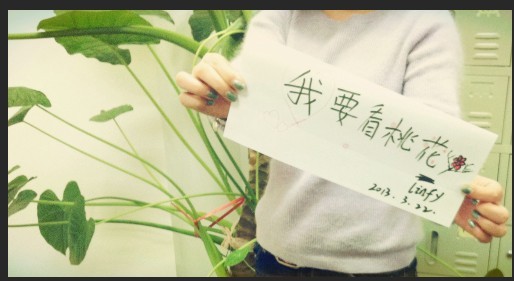 我要看桃花
Linfy
2013.3.22.